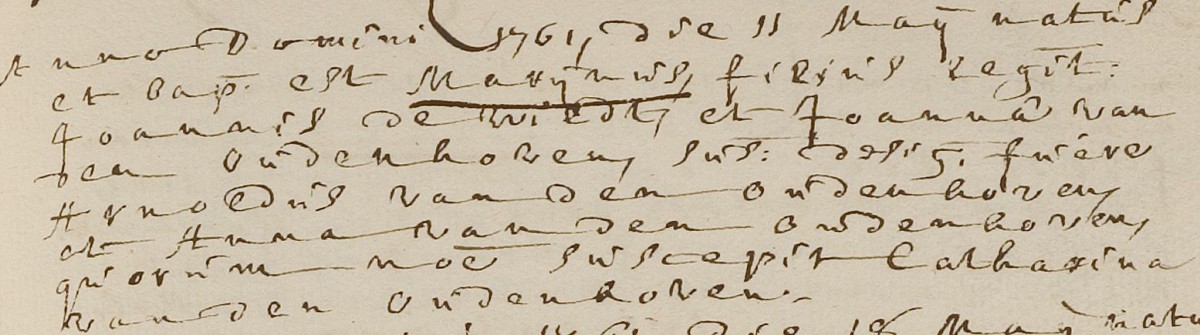 Anno Domini 1761, die 11 Maÿ natus
et bap. est Marÿnus, filius legit:
Joannis de Wiedt, et Joanna van
den Oudenhoven, sus: desig. fuere
Arnoldus van den Oudenhoven,
et Anna van den Oudenhoven,
quorum noē suscepit Catharina
van den Oudenhoven.
die 18 Maÿ natu